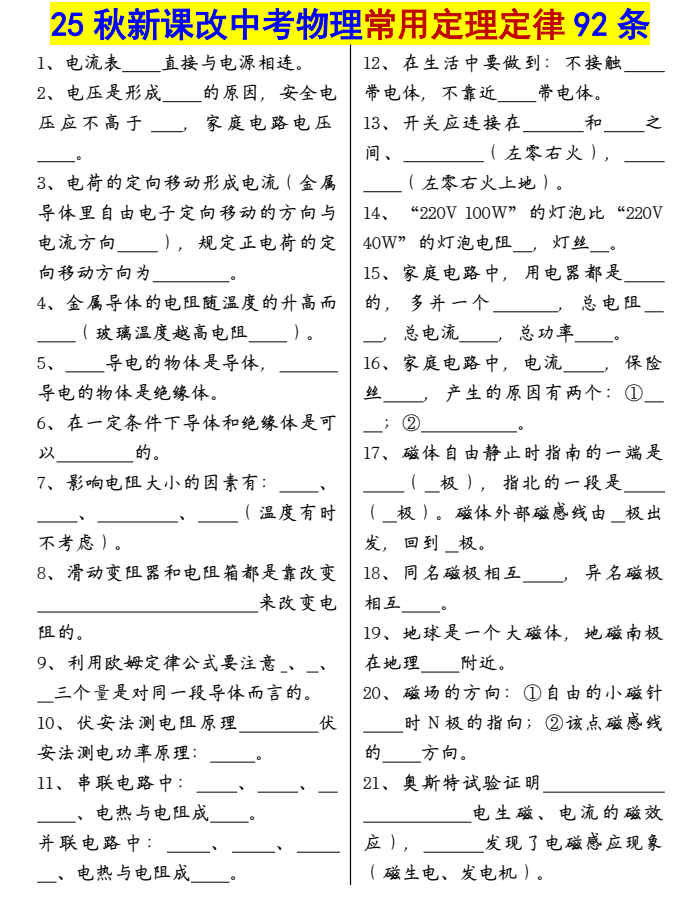 25 秋新课改中考物理常用定理定律 92 条
1、电流表____直接与电源相连。
2、电压是形成____的原因，安全电
压应不高于 ___，家庭电路电压
____。
3、电荷的定向移动形成电流（金属
导体里自由电子定向移动的方向与
电流方向____），规定正电荷的定
向移动方向为________。
4、金属导体的电阻随温度的升高而
____（玻璃温度越高电阻____）。
5、____导电的物体是导体，______
导电的物体是绝缘体。
6、在一定条件下导体和绝缘体是可
以________的。
7、影响电阻大小的因素有：____、
____、________、____（温度有时
不考虑）。
8、滑动变阻器和电阻箱都是靠改变
______________________来改变电
阻的。
9、利用欧姆定律公式要注意_、__、
__三个量是对同一段导体而言的。
10、伏安法测电阻原理________伏
安法测电功率原理：_____。
11、串联电路中：____、____、__
____、电热与电阻成____。
并联电路中：____、____、____
__、电热与电阻成____。
12、在生活中要做到：不接触____
带电体，不靠近____带电体。
13、开关应连接在______和____之
间、________（左零右火），____
____（左零右火上地）。
14、“220V 100W”的灯泡比“220V
40W”的灯泡电阻__，灯丝__。
15、家庭电路中，用电器都是____
的，多并一个_______，总电阻__
__，总电流____，总功率____。
16、家庭电路中，电流____，保险
丝____，产生的原因有两个：①__
__；②__________。
17、磁体自由静止时指南的一端是
____（__极），指北的一段是____
（__极）。磁体外部磁感线由__极出
发，回到__极。
18、同名磁极相互____，异名磁极
相互____。
19、地球是一个大磁体，地磁南极
在地理____附近。
20、磁场的方向：①自由的小磁针
____时 N 极的指向；②该点磁感线
的____方向。
21、奥斯特试验证明____________
___________电生磁、电流的磁效
应），______发现了电磁感应现象
（磁生电、发电机）。